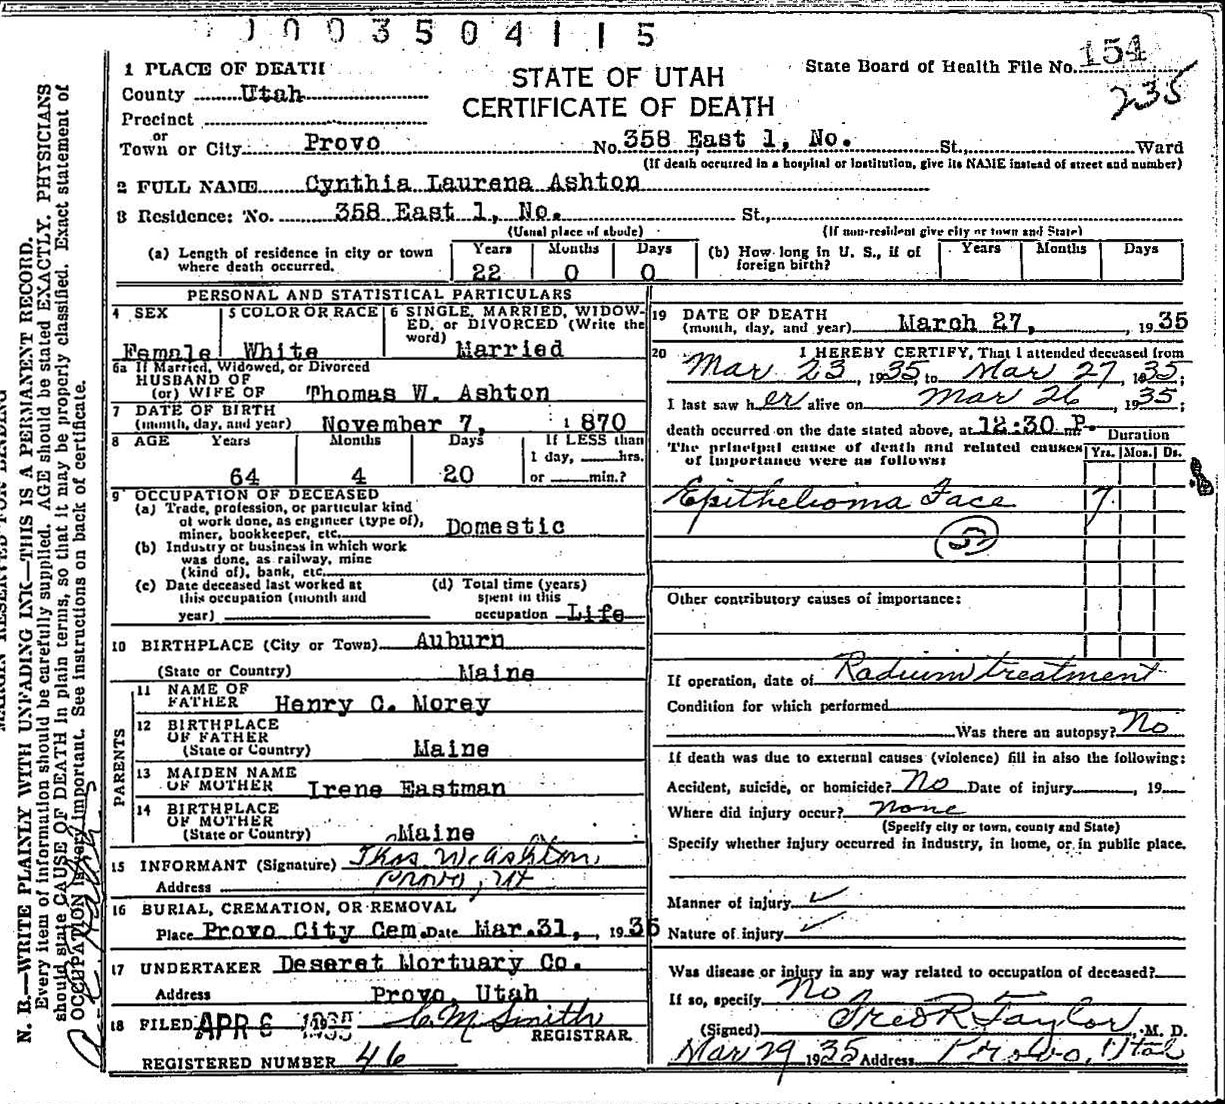 1003504115
1 PLACE OF DEATH
County Utah
Precinct
or
Town or City Provo No. 358 East 1, No. St., Ward
(If death occurred in a hospital or institution, give its NAME instead of street and number)
STATE OF UTAH
CERTIFICATE OF DEATH
State Board of Health File No. 154
235
2 FULL NAME Cynthia Laurena Ashton
3 Residence: No. 358 East 1, No. St.,
(Usual place of abode) (If non-resident give city or town and State)
(a) Length of residence in city or town where death occurred. Years 22 Months 0 Days 0
(b) How long in U. S., if of foreign birth? Years Months Days
PERSONAL AND STATISTICAL PARTICULARS
4 SEX Female
5 COLOR OR RACE White
6 SINGLE, MARRIED, WIDOWED, or DIVORCED (Write the word) Married
6a If Married, Widowed, or Divorced
HUSBAND OF
(or) WIFE OF Thomas W. Ashton
7 DATE OF BIRTH
(month, day, and year) November 7, 1870
8 AGE Years 64 Months 4 Days 20 If LESS than 1 day, hrs. or min.?
9 OCCUPATION OF DECEASED
(a) Trade, profession, or particular kind of work done, as engineer (type of), miner, bookkeeper, etc. Domestic
(b) Industry or business in which work was done, as railway, mine (kind of), bank, etc.
(c) Date deceased last worked at this occupation (month and year)
(d) Total time (years) spent in this occupation Life
10 BIRTHPLACE (City or Town) Auburn
(State or Country) Maine
PARENTS
11 NAME OF FATHER Henry C. Morey
12 BIRTHPLACE OF FATHER
(State or Country) Maine
13 MAIDEN NAME OF MOTHER Irene Eastman
14 BIRTHPLACE OF MOTHER
(State or Country) Maine
15 INFORMANT (Signature) Thos W. Ashton
Address Provo, Ut
16 BURIAL, CREMATION, OR REMOVAL
Place Provo City Cem. Date Mar. 31, 1935
17 UNDERTAKER Deseret Mortuary Co.
Address Provo, Utah
18 FILED APR 6 1935 C. M. Smith
REGISTRAR.
REGISTERED NUMBER 46
19 DATE OF DEATH
(month, day, and year) March 27, 1935
20 I HEREBY CERTIFY, That I attended deceased from
Mar 23, 1935, to Mar 27, 1935;
I last saw her alive on Mar 26, 1935;
death occurred on the date stated above, at 12:30 P. m.
The principal cause of death and related causes of importance were as follows:
Duration
Yrs. Mos. Ds.
Epithelioma Face 7
Other contributory causes of importance:
If operation, date of Radium treatment
Condition for which performed
Was there an autopsy? No
If death was due to external causes (violence) fill in also the following:
Accident, suicide, or homicide? No Date of injury , 19
Where did injury occur? none
(Specify city or town, county and State)
Specify whether injury occurred in industry, in home, or in public place.
Manner of injury ✓
Nature of injury ✓
Was disease or injury in any way related to occupation of deceased?
If so, specify No
(Signed) Fred R Taylor, M. D.
Mar 29 1935 Address Provo, Utah
MARGIN RESERVED FOR BINDING
N. B.—WRITE PLAINLY WITH UNFADING INK—THIS IS A PERMANENT RECORD.
Every item of information should be carefully supplied. AGE should be stated EXACTLY. PHYSICIANS
should state CAUSE OF DEATH in plain terms, so that it may be properly classified. Exact statement of
OCCUPATION is very important. See instructions on back of certificate.